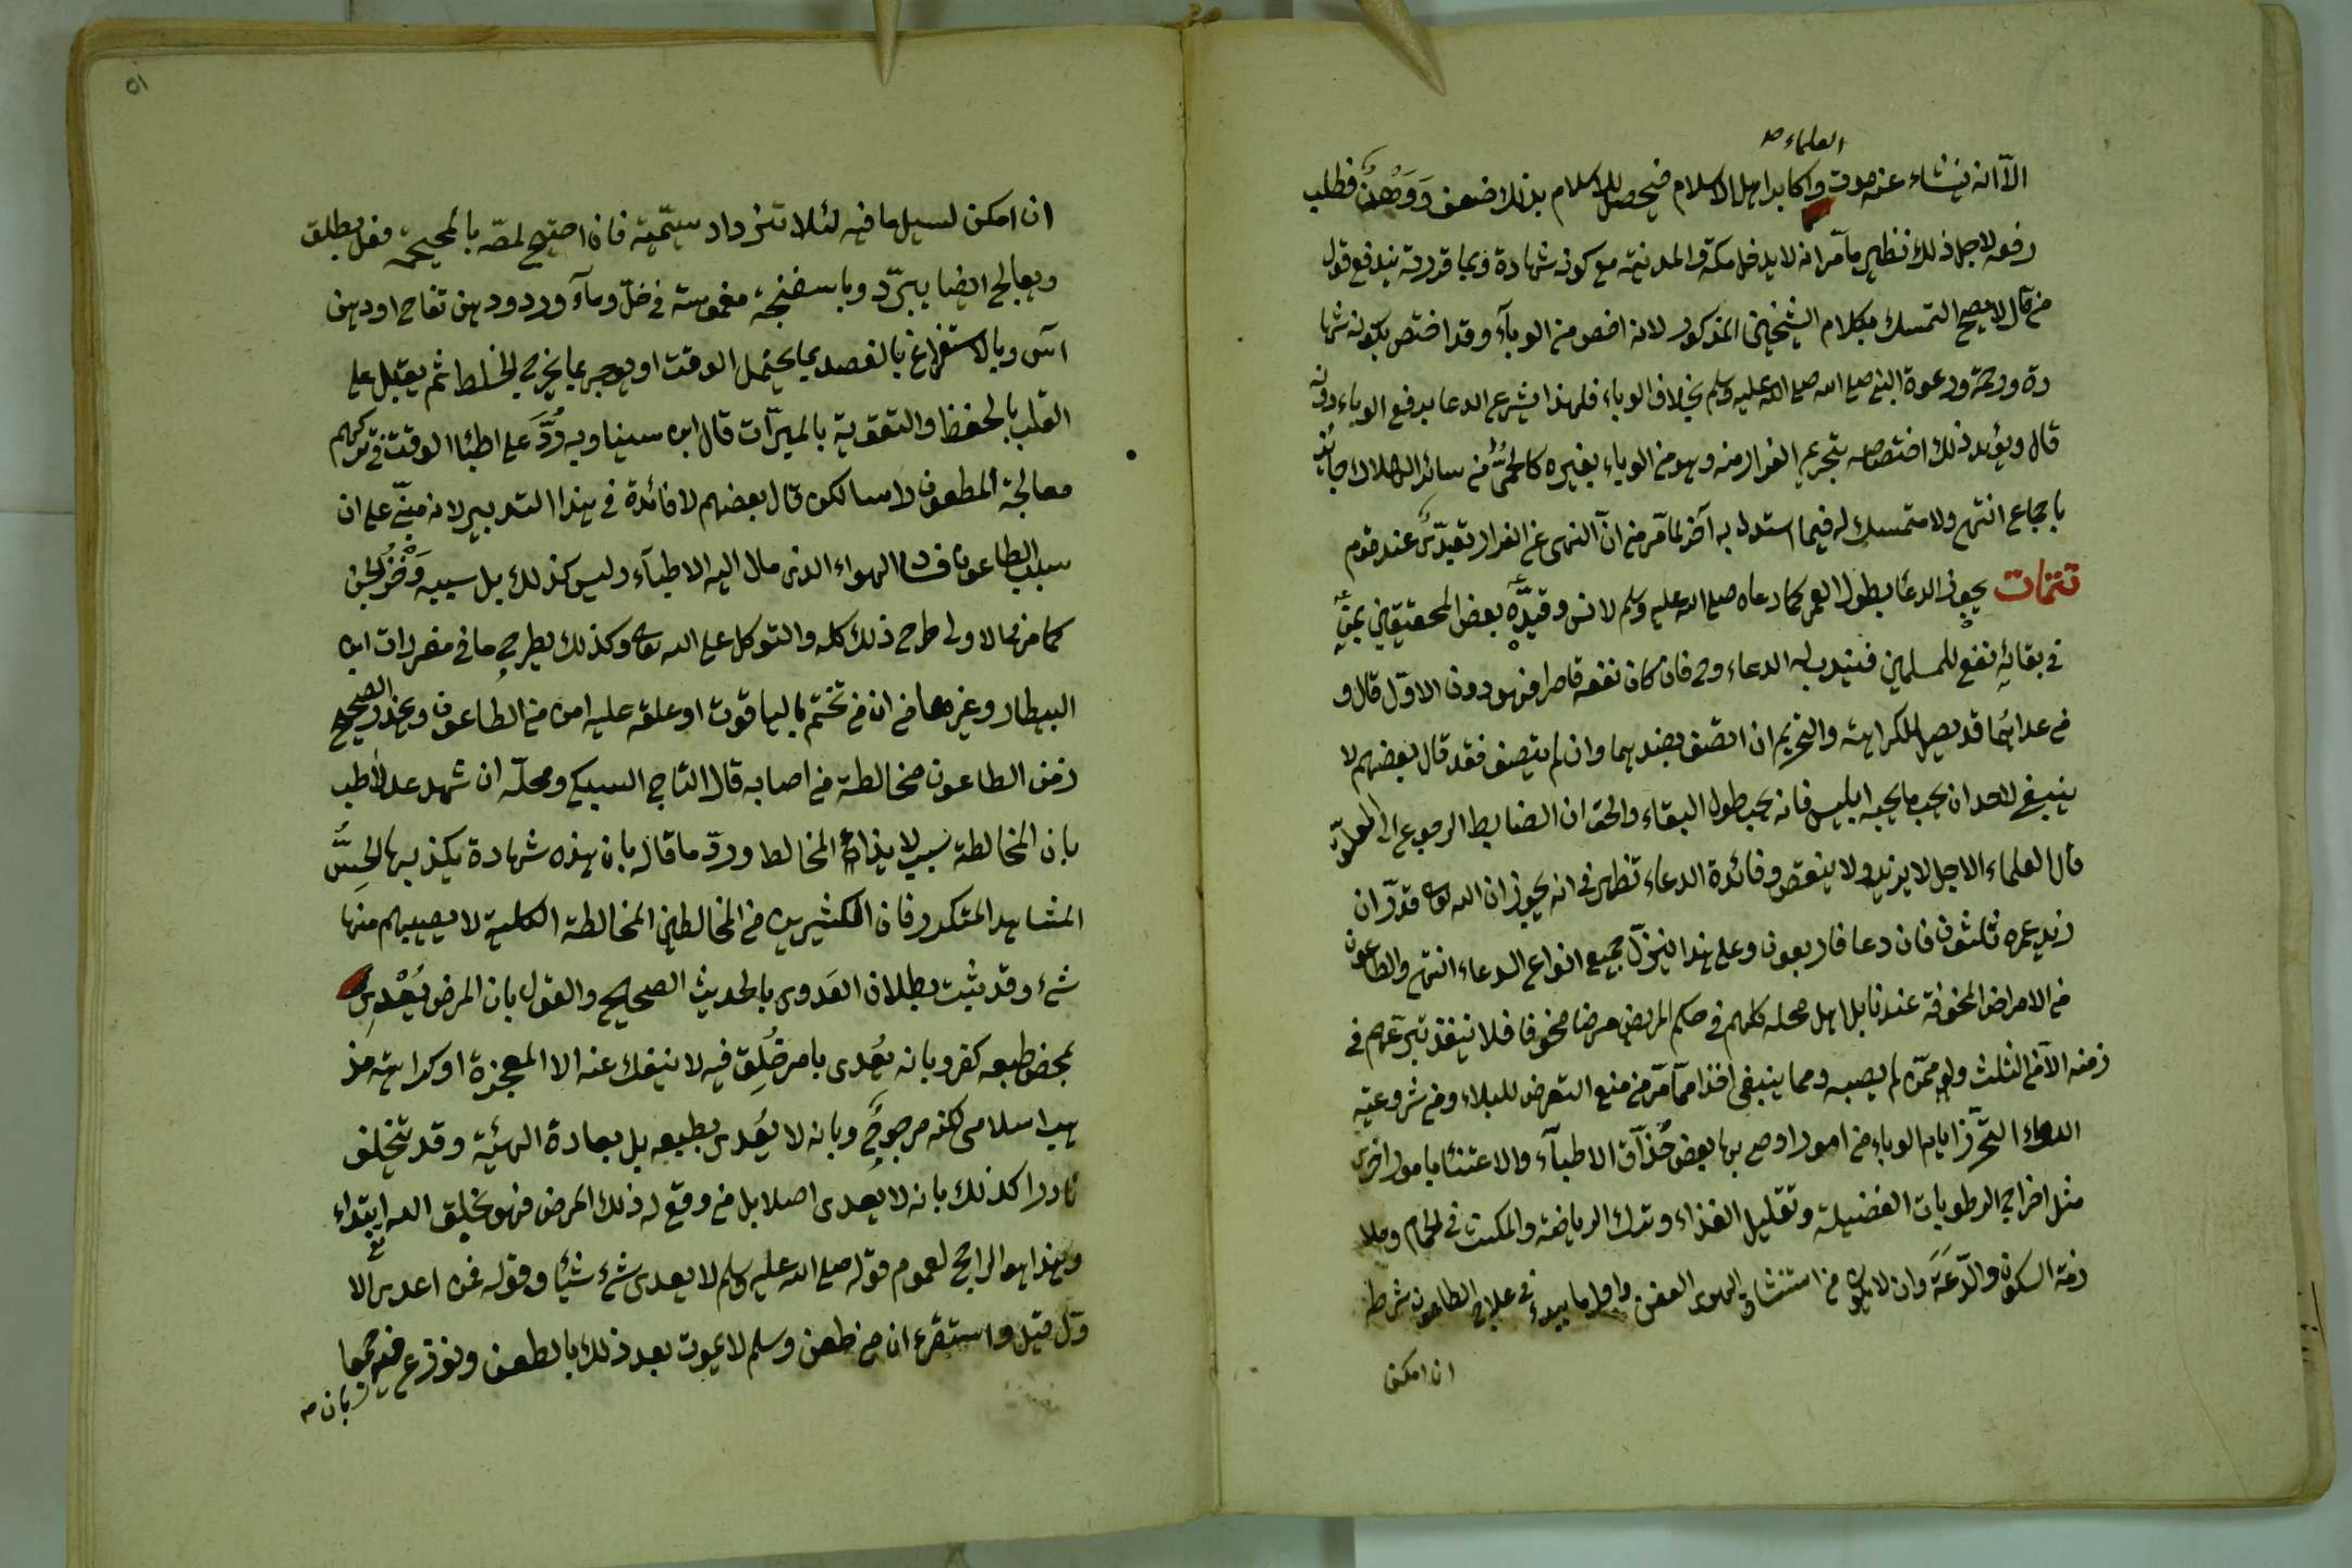 العلماء صح
الا انه ينشاء عنه موت واكابر اهل الاسلام فيحصل للاسلام بذلك ضعف ووهن فطلب
رفعه لاجل ذلك نظير ما مر انه لا يدخل مكة والمدينة مع كونه شهادة وبما قررته يندفع قول
من قال لا يصح التمسك بكلام الشيخين المذكور لانه اخص من الوباء وقد اختص بكونه شها
دة ورحمة ودعوة النبي صلى الله صلى الله عليه وسلم بخلاف الوباء فلهذا يشرع الدعا برفع الوباء دونه
قال ويؤيد ذلك اختصاصه بتحريم الفرار منه وهو من الوباء بغيره كالحمى من سائر الهلاك جائز
باجماع انتهى ولا متمسك له فيما استدل به آخر لما مر من ان النهى عن الفرار تعبدى عند قوم
تتمات يجوز الدعا بطول العمر كما دعاه صلى الله عليه وسلم لانس وقيده بعض المحققين بمن
فى بقائه نفع للمسلمين فيندب له الدعاء وح فان كان نفعه قاصرا فهو دون الاول قال و
من عداهما قد يصل للكراهة والتحريم ان اتصف بضدهما وان لم يتصف فقد قال بعضهم لا
ينبغى لاحد ان يحب ما يحبه ابليس فانه يحب طول البقاء والحق ان الضابط الرجوع الى
قال العلماء الاجل لا يزيد ولا ينقص وفائدة الدعاء تظهر فى انه يجوز ان الله تعالى قدر ان
زيد عمره ثلثون فان دعا فاربعون وعلى هذا ينزل جميع انواع الدعاء انتهى والطاعون
من الامراض المخوفة عندنا بل اهل محله كلهم فى حكم المريض مرضا مخوفا فلا ينفذ تبرعهم فى
زمنه الا من الثلث ولو ممن لم يصبه ومما ينبغى اخذا مما مر من منع التعرض للبلاء ومن شروعية
الدعاء التحرز ايام الوباء من امور اوصى بها بعض حذاق الاطباء والاعتناء بامور اخرى
مثل اخراج الرطوبات الفضيلة وتقليل الغذاء وترك الرياضة والمكث فى الحمام وملا
زمة السكون والدعة وان لا يكثر من استنشاق الهوى العفن واول ما يبدء فى علاج الطاعون شرطه
ان امكن
٥١
ان امكن لسيل ما فيه لئلا تزداد سميته فان احتيج لمصه بالمحجمة فعل بطلق
ويعالج ايضا بيبرد وباسفنجة مغموسة فى خل وماء ورد ودهن تفاح او دهن
آس وبالاستفراغ بالفصد بما يحتمل الوقت او يوجر بما يخرج الخلط ثم يقبل على
القلب بالحفظ والتقوية بالمبردات قال ابن سينا وبه رد على اطباء الوقت فى تركهم
معالجة المطعون لكن قال بعضهم لا فائدة فى هذا التدبير لانه مبنى على ان
سبب الطاعون فساد الهواء الذى مال اليه الاطباء وليس كذلك بل سببه وخز الجن
كما مر فالاولى طرح ذلك كله والتوكل على الله تعالى وكذلك يطرح ما فى مفردات ابن
البيطار وغيرها من ان من تختم بالياقوت او علقه عليه امن من الطاعون ويحذر الصحيح
زمن الطاعون مخالطة من اصابه قال التاج السبكى ومحله ان شهد عدلا طب
بان المخالطة سبب لايذاء المخالط ورد ما قاله بان هذه شهادة يكذبها الحس
المشاهد المتكرر فان الكثيرين من المخالطين المخالطة الكلية لا يصيبهم منها
شئ وقد ثبت بطلان العدوى بالحديث الصحيح والقول بان المرض يعدى
بمحض طبعه كفر وبانه يعدى بامر خلق فيه لا ينفك عنه الا المعجزة او كرامة مذ
هب اسلامى لكنه مرجوح وبانه لا يعدى بطبعه بل بعادة الهئية وقد تتخلف
نادرا كذلك بانه لا يعدى اصلا بل من وقع له ذلك المرض فهو بخلق الله ابتداء
وهذا هو الراجح لعموم قوله صلى الله عليه وسلم لا يعدى شئ شيئا وقوله فمن اعدى الا
ول قيل واستقرء ان من طعن وسلم لا يموت بعد ذلك بالطعن ونوزع فيهما
بان م